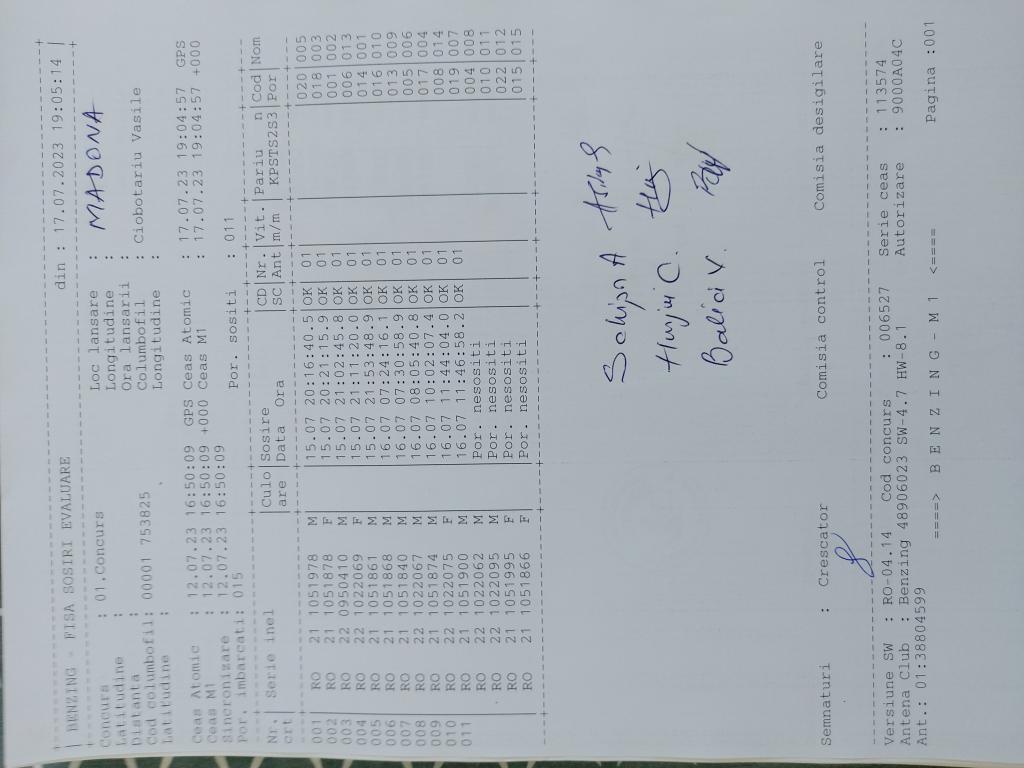 | BENZING - FISA SOSIRI EVALUARE din : 17.07.2023 19:05:14 |
Concurs : 01.Concurs Loc lansare : MADONA
Latitudine : Longitudine :
Distanta : Ora lansarii :
Cod columbofil: 00001 753825 Columbofil : Ciobotariu Vasile
Latitudine : Longitudine :
Ceas Atomic : 12.07.23 16:50:09 GPS Ceas Atomic : 17.07.23 19:04:57 GPS
Ceas M1 : 12.07.23 16:50:09 +000 Ceas M1 : 17.07.23 19:04:57 +000
Sincronizare : 12.07.23 16:50:09
Por. imbarcati: 015 Por. sositi : 011
Nr.| Serie inel |Culo|Sosire |CD|Nr.|Vit.|Pariu n|Cod|Nom
crt |are |Data Ora |SC|Ant|m/m | KPSTS2S3|Por|
001 RO 21 1051978 M 15.07 20:16:40.5 OK 01 020 005
002 RO 21 1051878 F 15.07 20:21:15.9 OK 01 018 003
003 RO 22 0950410 M 15.07 21:02:45.8 OK 01 001 002
004 RO 22 1022069 F 15.07 21:11:20.0 OK 01 006 013
005 RO 21 1051861 M 15.07 21:53:48.9 OK 01 014 001
006 RO 21 1051868 M 16.07 07:24:16.1 OK 01 016 010
007 RO 21 1051840 M 16.07 07:30:58.9 OK 01 013 009
008 RO 22 1022067 M 16.07 08:05:40.8 OK 01 005 006
009 RO 21 1051874 M 16.07 10:02:07.4 OK 01 017 004
010 RO 22 1022075 F 16.07 11:44:04.0 OK 01 008 014
011 RO 21 1051900 M 16.07 11:46:58.2 OK 01 019 007
RO 22 1022062 M Por. nesositi 004 008
RO 22 1022095 M Por. nesositi 010 011
RO 21 1051995 F Por. nesositi 022 012
RO 21 1051866 F Por. nesositi 015 015
Semnaturi : Crescator Comisia control Comisia desigilare
Versiune SW : RO-04.14 Cod concurs : 006527 Serie ceas : 113574
Antena Club : Benzing 48906023 SW-4.7 HW-8.1 Autorizare : 9000A04C
Ant.: 01:38804599
====> B E N Z I N G - M 1 <==== Pagina :001